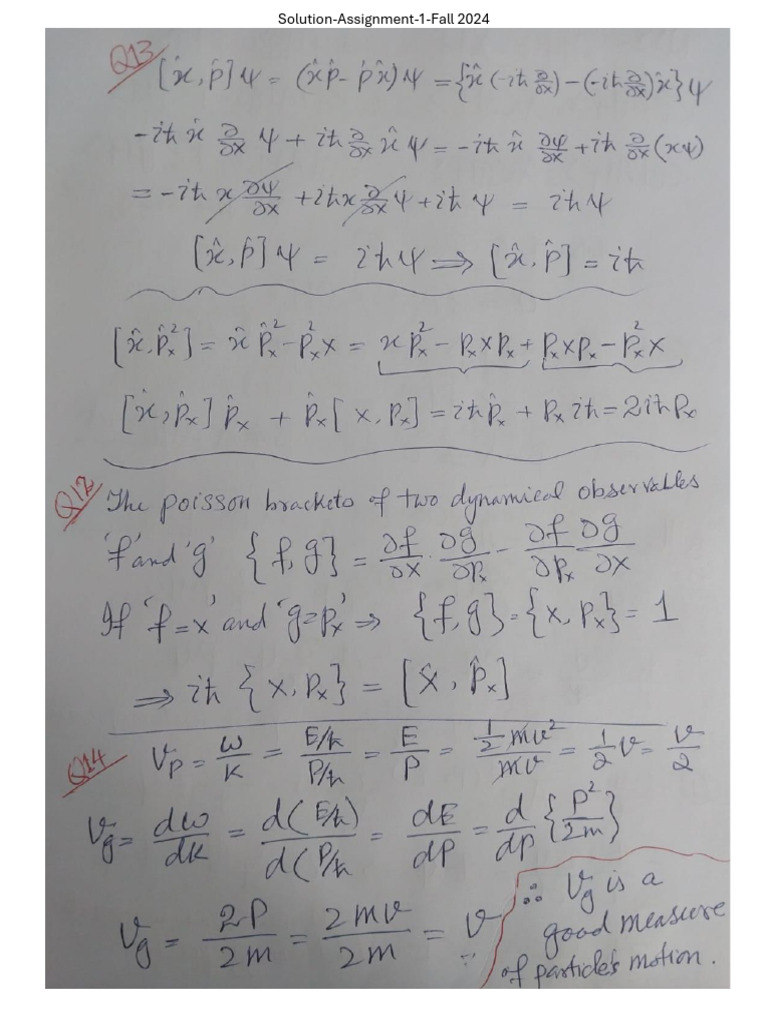 Solution-Assignment-1-Fall 2024
Q13
[x̂, p̂]ψ = (x̂p̂ - p̂x̂)ψ = {x̂(-iħ ∂/∂x) - (-iħ ∂/∂x)x̂}ψ
-iħ x̂ ∂/∂x ψ + iħ ∂/∂x x̂ψ = -iħ x̂ ∂ψ/∂x + iħ ∂/∂x (xψ)
= -iħ x ∂ψ/∂x + iħx ∂/∂x ψ + iħ ψ = iħψ
[x̂, p̂]ψ = iħψ ⟹ [x̂, p̂] = iħ
[x̂, p̂ₓ²] = x̂ p̂ₓ² - pₓ²x = x pₓ² - pₓxpₓ + pₓxpₓ - pₓ²x
[x̂, p̂ₓ] p̂ₓ + p̂ₓ [x, pₓ] = iħp̂ₓ + pₓ iħ = 2iħ pₓ
Q12 The poisson brackets of two dynamical observables
'f' and 'g' {f, g} = ∂f/∂x . ∂g/∂pₓ - ∂f/∂pₓ ∂g/∂x
If 'f=x' and 'g=pₓ' ⇒ {f, g} = {x, pₓ} = 1
⟹ iħ {x, pₓ} = [x̂, p̂ₓ]
Q14 Vp = ω/k = (E/ħ)/(P/ħ) = E/P = (½ mv²)/(mv) = ½ v = v/2
Vg = dω/dk = d(E/ħ)/d(P/ħ = dE/dP = d/dP {P²/2m}
Vg = 2P/2m = 2mv/2m = v
∴ Vg is a
good measure
of particle's motion.